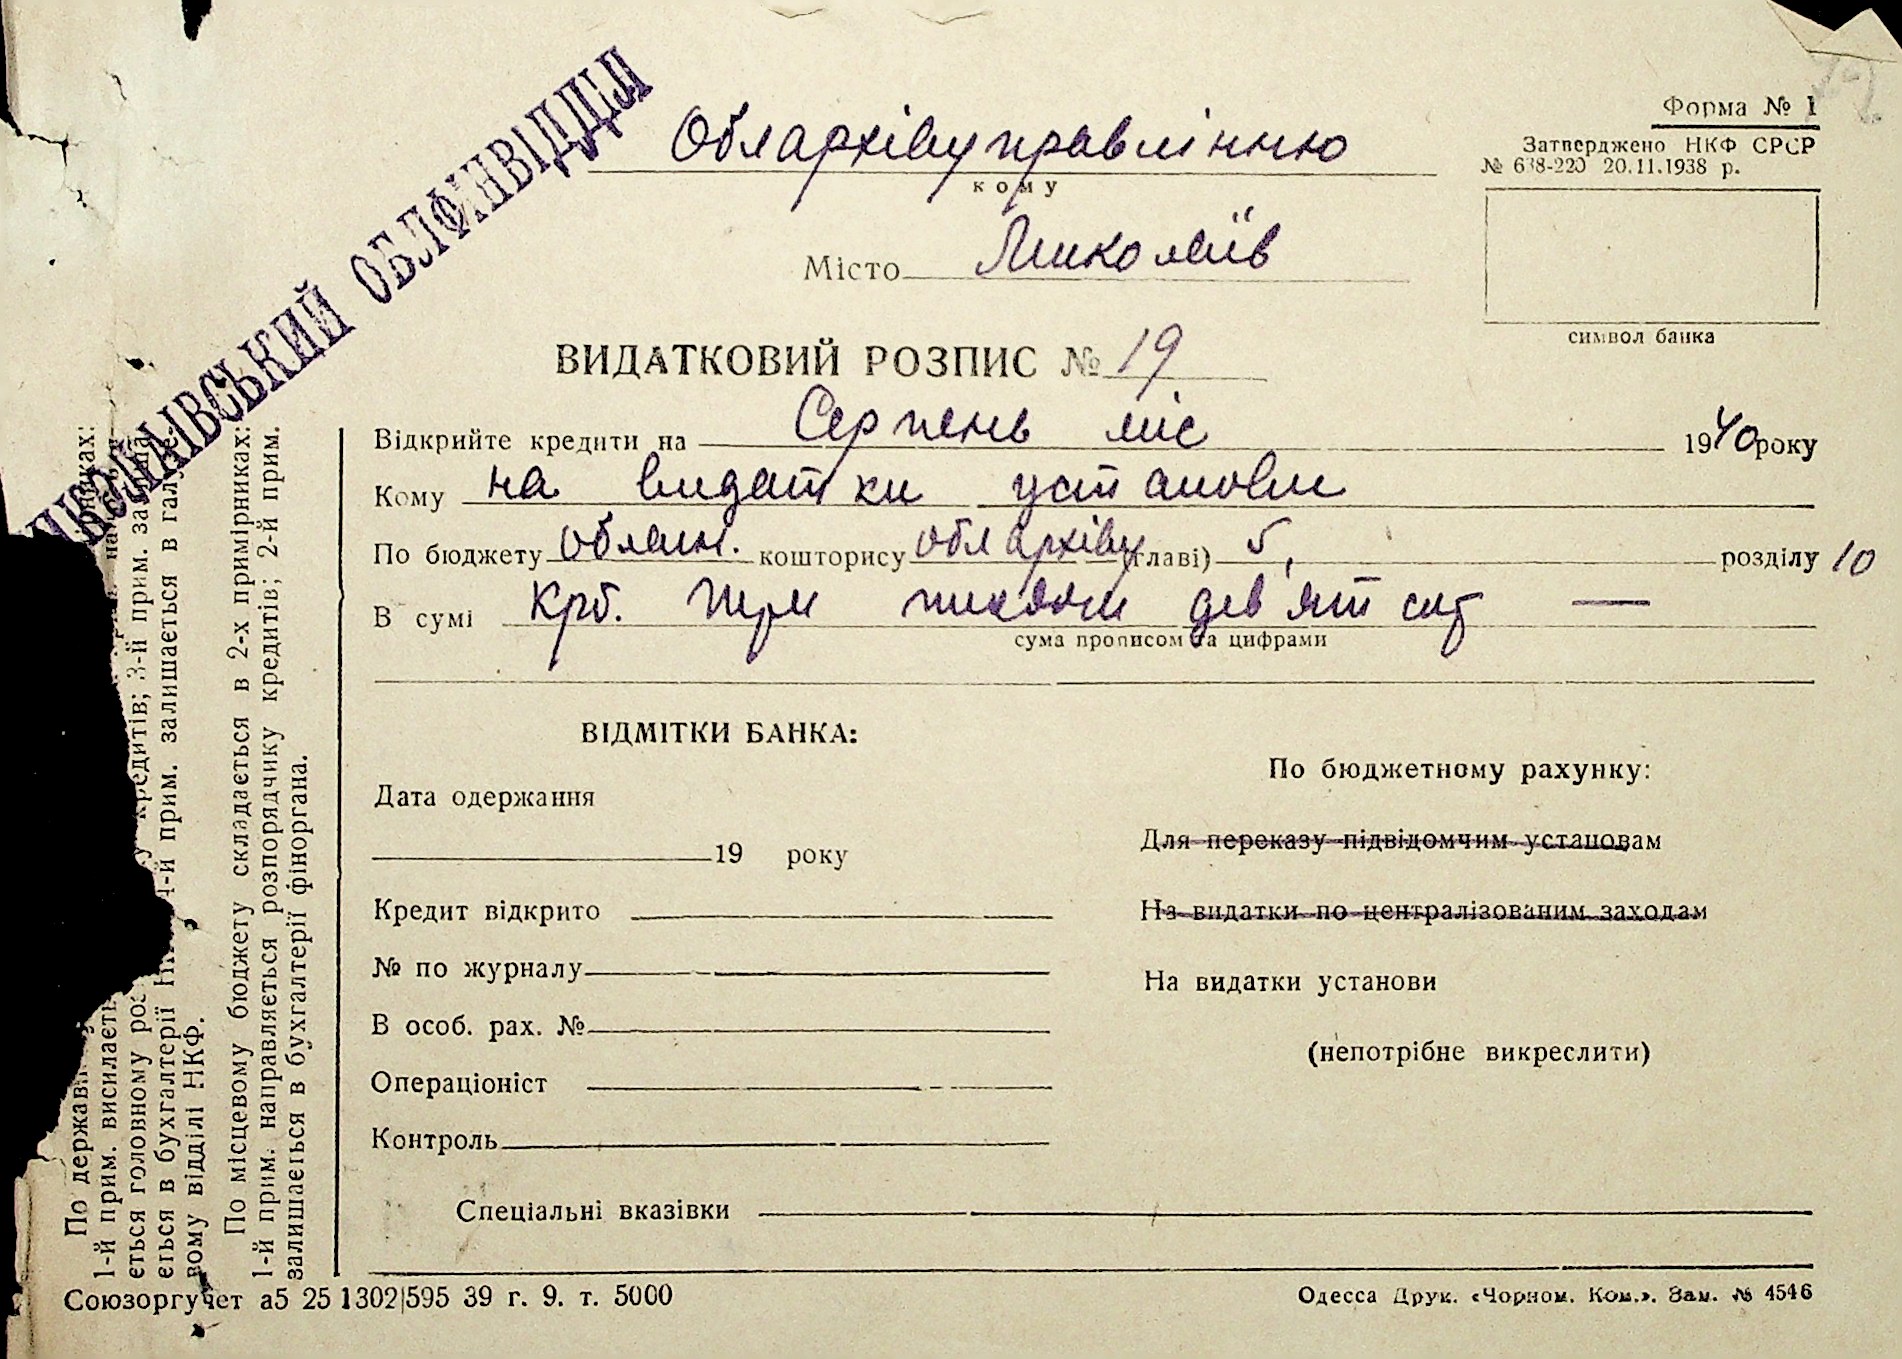 МИКОЛАЇВСЬКИЙ ОБЛФІНВІДДІЛ
Облархівуправлінню
кому
Місто Миколаїв
Форма № 1
Затверджено НКФ СРСР
№ 638-220 20.11.1938 р.
символ банка
ВИДАТКОВИЙ РОЗПИС № 19
Відкрийте кредити на Серпень міс 1940 року
Кому на видатки установи
По бюджету обласн. кошторису облархіву (главі) 5, розділу 10
В сумі крб. три тисячи дев'ятсот —
сума прописом та цифрами
ВІДМІТКИ БАНКА:
Дата одержання
19 року
Кредит відкрито
№ по журналу
В особ. рах. №
Операціоніст
Контроль
По бюджетному рахунку:
Для переказу підвідомчим установам
На видатки по централізованим заходам
На видатки установи
(непотрібне викреслити)
Спеціальні вказівки
По держав
1-й прим. висилаєть кредитів; 3-й прим.
ється головному роз
ється в бухгалтерії 4-й прим. залишається в
вому відділі НКФ.
По місцевому бюджету складається в 2-х примірниках:
1-й прим. направляється розпорядчику кредитів; 2-й прим.
залишається в бухгалтерії фіноргана.
Союзоргучет а5 25 1302|595 39 г. 9. т. 5000
Одесса Друк. «Чорном. Ком.». Зам. № 4546